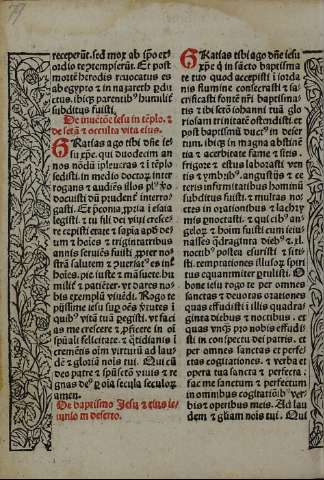 receperūt. sed mox ab ip̄o ex⸗
ordio te ꝯtempserūt. Et post
mortē herodis reuocatus es
ab egypto ⁊ in nazareth ꝑdu
ctus. ibiqꝫ parentibꝰ humilit̄
subditus fuisti.
De inuētiōe iesu in tēplo. ⁊
de setā ⁊ occulta vita eius.
GRatias ago tibi dn̄e ie⸗
su xp̄e. qui duodecim an
nos nudū ipleueras ⁊ i tēplo
sedisti. in medio doctoꝝ inter
rogans ⁊ audiēs illos
docuisti dū prudent̄ interro⸗
gasti. Et
legisti. ⁊ tu fili dei viui cresce⸗
re cepisti etate ⁊ sapia apꝰ de⸗
um ⁊ hoīes ⁊ trigintatribus
annis seruiēs fuisti. ꝓpter nos
strā salutem ⁊ ꝯuersatꝰ es in⸗
hoīes. pie. iuste ⁊ māsuete. hu
milit̄ ⁊ patiēter. vt dares no⸗
bis exemplū viuēdi. Rogo te
piissime iesu suꝑ oēs ꝟtutes i
quibꝰ vitā tuā ꝑegisti. vt faci
as me crescere ⁊ ꝓficere in oī
spūali felicitate. ⁊ q̄tidianis i
cremētis oīm virtutū ad lau⸗
dē ⁊ gloriā nois tui. Qui cū
deo patre ⁊ spūsctō viuis ⁊ re
gnas deꝰ ꝑ oīa secula seculoꝝ
amen.
De baptismo Jesu ⁊ eius ie⸗
iunio in deserto.
GRatias tibi ago dn̄e iesu
xp̄e ꝙ in sācto baptisma
te tuo quod accepisti i iorda
nis flumine consecrasti ⁊ sa⸗
crificasti fontē nr̄i baptisma⸗
tis ⁊ ibi sctō iohanni tuā glo
riosam trinitatē ostendisti. et
post baptismū ductꝰ in deser
tum. ibiqꝫ in magna abstinē
tia ⁊ acerbitate fame ⁊ sitis.
frigore ⁊ estus laborasti ven
tis ⁊ ymbribꝰ. angustijs ⁊ ce
teris infirmitatibus hominū
subditus fuisti. ⁊ multas no⸗
ctes in orationibus ⁊ lachry
mis ꝑnoctasti. ⁊ qui cibꝰ an⸗
geloꝝ ⁊ hoim fuisti cum ieiu⸗
nasses q̄draginta diebꝰ ⁊. xl.
noctibꝰ postea esuristi ⁊ sti⸗
sti. temptationes illusoꝝ spiri
tus equanimiter ꝑtulisti. O
bone iesu rogo te per omnes
sanctas ⁊ deuotas orationes
quas effudisti i illis quadra⸗
ginta diebus ⁊ noctibus. et
quas vnqꝫ pro nobis effudi⸗
sti in conspectu dei patris. et
per omnes sanctas et perfe⸗
ctas cogitationes. ⁊ verba et
opera tua sancta ⁊ perfecta.
fac me sanctum ⁊ perfectum
in omnibus cogitationibꝰ ver⸗
bis ⁊ operibus meis. Ad lau
dem ⁊ gliam nois tui. Qui